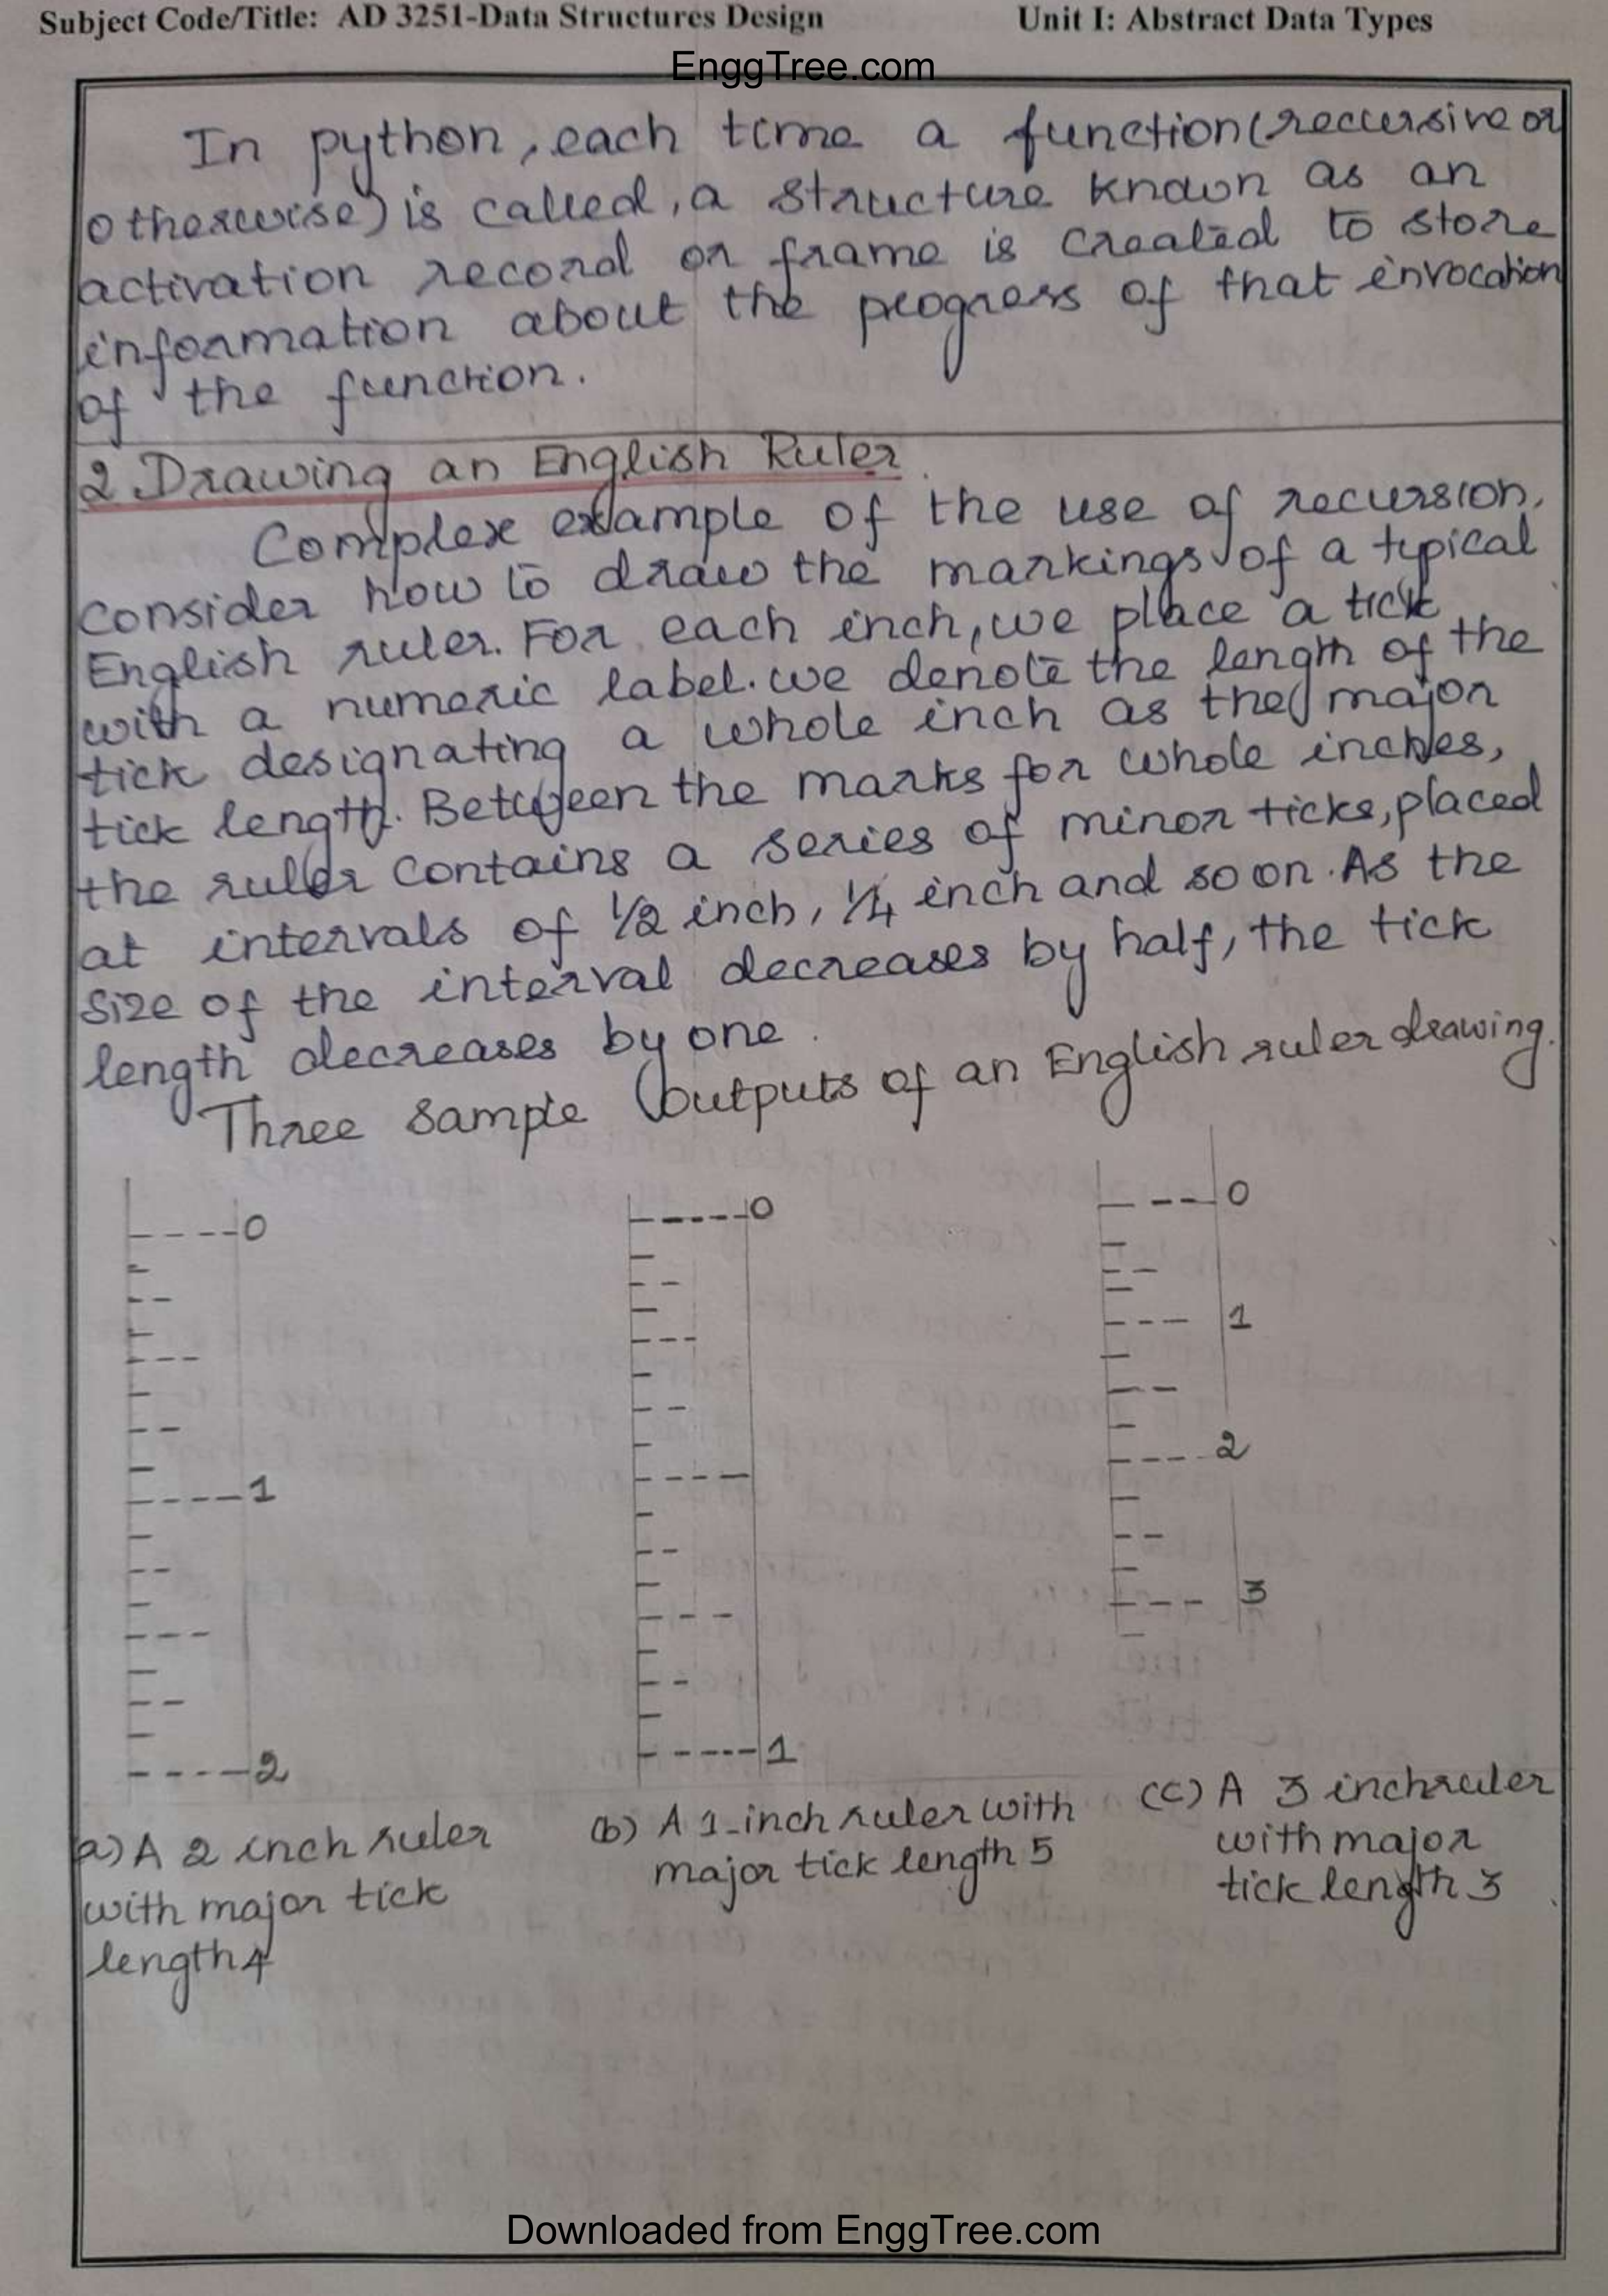 Subject Code/Title: AD 3251-Data Structures Design Unit I: Abstract Data Types
EnggTree.com
In python, each time a function (recursive or
otherwise) is called, a structure known as an
activation record or frame is created to store
information about the progress of that invocation
of the function.
2 Drawing an English Ruler
Complex example of the use of recursion,
consider how to draw the markings of a typical
English ruler. For each inch, we place a tick
with a numeric label. we denote the length of the
tick designating a whole inch as the major
tick length. Between the marks for whole inches,
the ruler contains a series of minor ticks, placed
at intervals of 1/2 inch, 1/4 inch and so on. As the
size of the interval decreases by half, the tick
length decreases by one.
Three sample outputs of an English ruler drawing.
---- 0
-
--
-
---
-
--
-
---- 1
-
--
-
---
-
--
-
---- 2
a) A 2 inch ruler
with major tick
length 4
----- 0
-
--
-
---
-
--
-
----
-
--
-
---
-
--
-
----- 1
(b) A 1-inch ruler with
major tick length 5
--- 0
-
--
-
--- 1
-
--
-
--- 2
-
--
-
--- 3
(c) A 3 inch ruler
with major
tick length 3
Downloaded from EnggTree.com